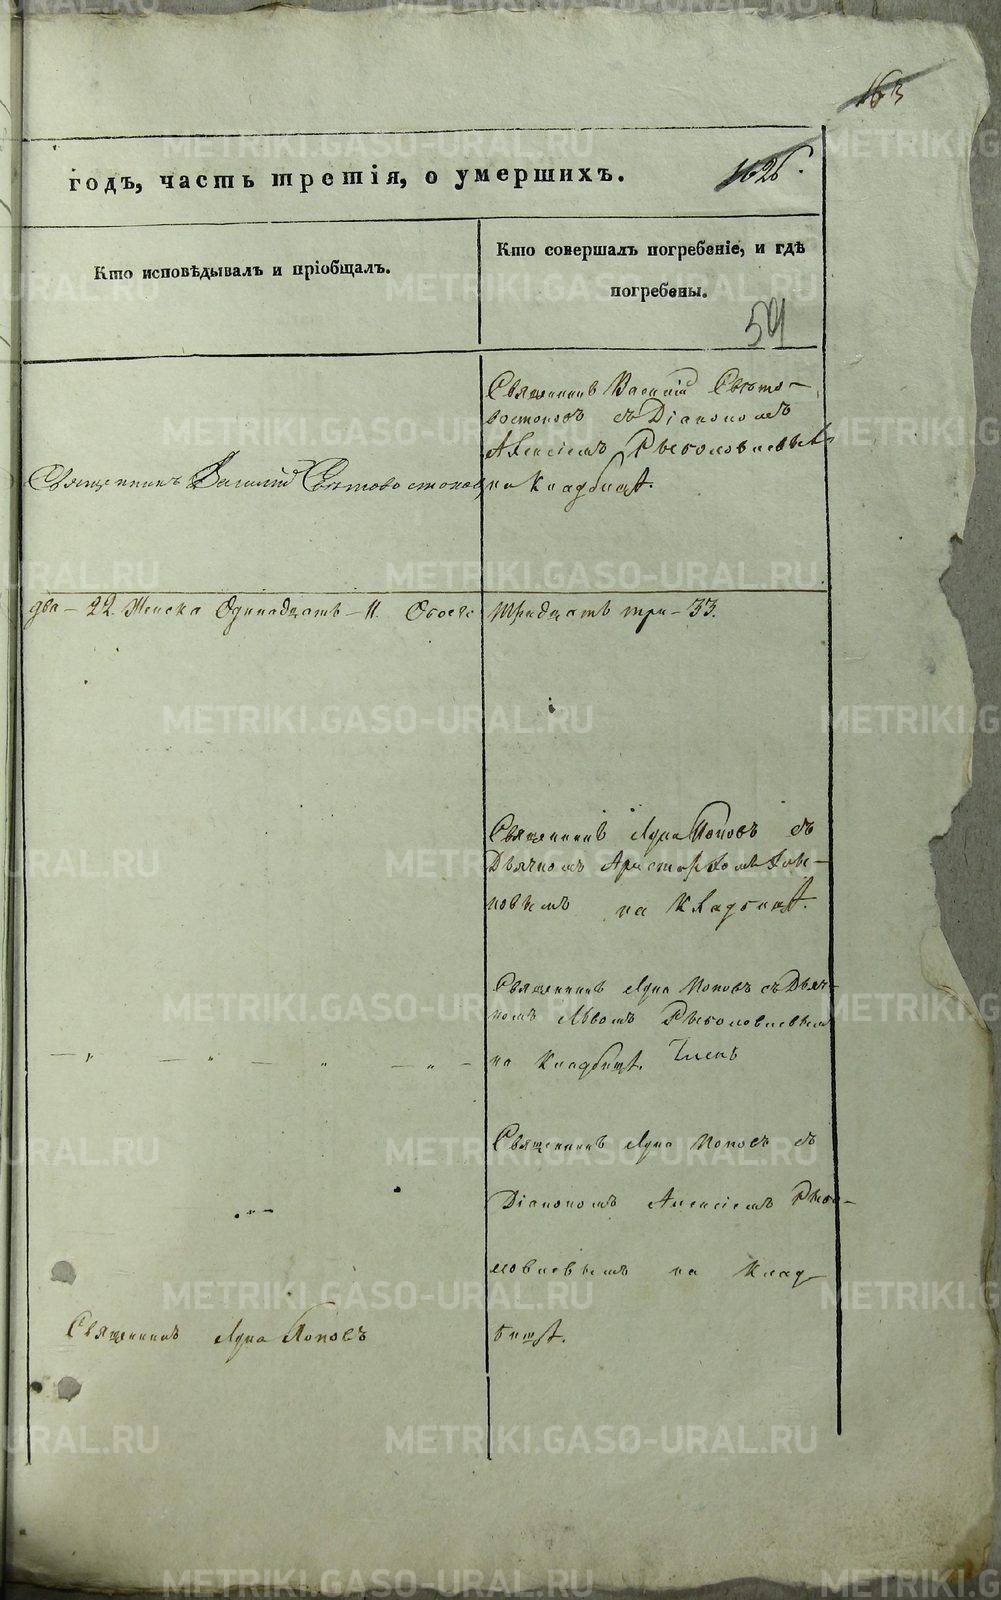 163
годъ, часть третія, о умершихъ.
1626.
Кто исповѣдывалъ и пріобщалъ.
Кто совершалъ погребеніе, и гдѣ
погребены.
Священникъ Василій Свѣто-
востоковъ съ Діакономъ
Алексіемъ
Священникъ Василій Свѣтовостоковъ
на Кладбищѣ.
два - 22. Женска Одинадцать - 11. Обоего
Тридцать три - 33.
Священникъ Лука Поповъ съ
Дьячкомъ Аристархомъ
на Кладбищѣ.
Священникъ Лука Поповъ съ Дьяч-
комъ Львомъ
на Кладбищѣ.
Священникъ Лука Поповъ съ
Діакономъ Алексіемъ
на Клад-
Священникъ Лука Поповъ
бищѣ.
METRIKI.GASO-URAL.RU